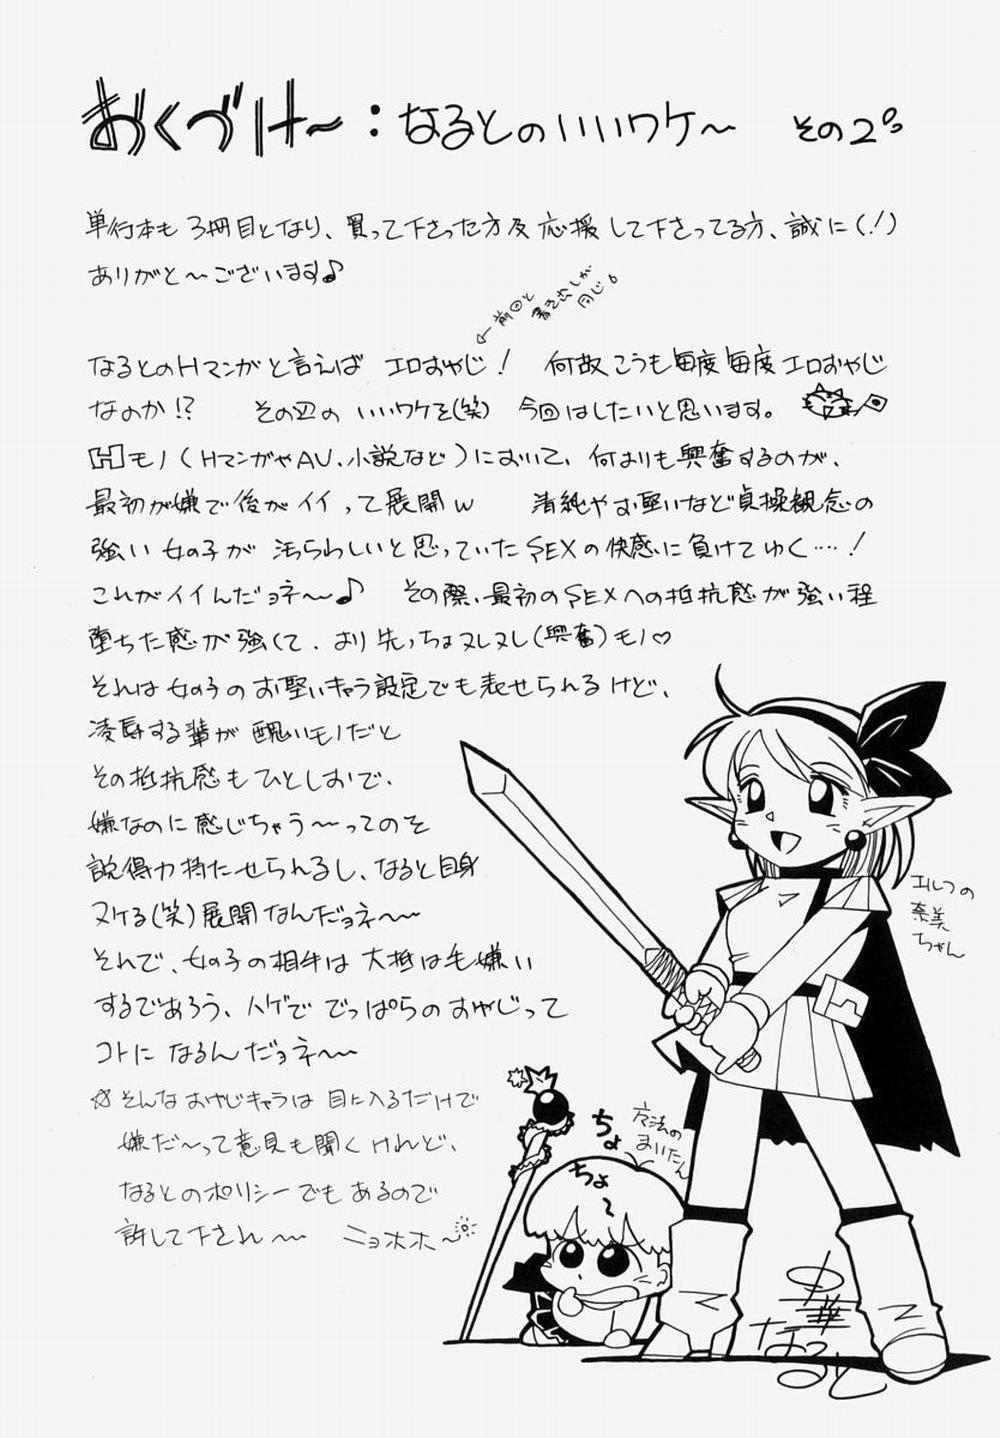 おくづけ〜：なるとのいいワケ〜 その2。
単行本も3冊目となり、買って下さった方及応援して下さってる方、誠に(！)
ありがと〜ございます♪
←前回と
同じ。
なるとのHマンガと言えば エロおやじ！ 何故こうも毎度毎度エロおやじ
なのか!? その辺のいいワケを(笑) 今回はしたいと思います。
Hモノ（HマンガやAV、小説など）において、何よりも興奮するのが、
最初が嫌で後がイイって展開w 清純やお堅いなど貞操観念の
強い女の子が汚らわしいと思っていたSEXの快感に負けてゆく…！
これがイイんだョネ〜♪ その際、最初のSEXへの抵抗感が強い程
堕ちた感が強くて、より先っちょヌレヌレ(興奮)モノ♡
それは女の子のお堅いキャラ設定でも表せられるけど、
凌辱する輩が醜いモノだと
その抵抗感もひとしおで、
嫌なのに感じちゃう〜ってのを
説得力持たせられるし、なると自身
ヌケる(笑)展開なんだョネ〜〜
それで、女の子の相手は大抵は毛嫌い
するであろう、ハゲででっぱらのおやじって
コトになるんだョネ〜〜
☆そんなおやじキャラは目に入るだけで
嫌だ〜って意見も聞くけれど、
なるとのポリシーでもあるので
許して下され〜〜 ニョホホ〜
エルフの
奈美
ちゃん
ちょ
ちょ〜
魔法の
まいたん
中華
なると